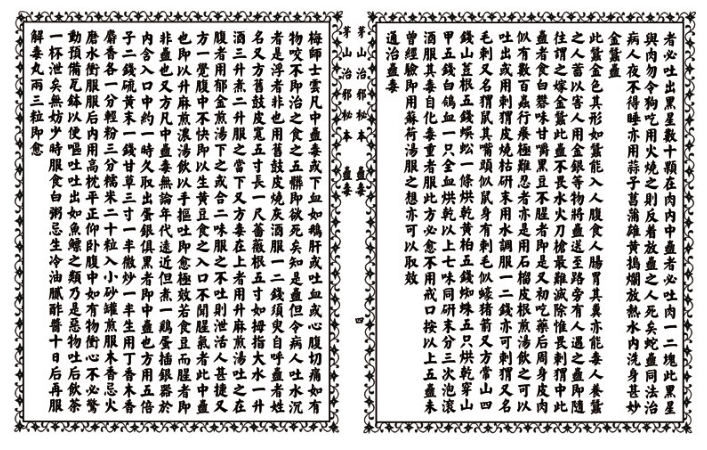 者必吐出黑星数十顆在肉内中蠱者必吐肉一二塊此黑星
與肉勿令狗吃用火燒之則反着放蠱之人死矣蛇蠱同法治
病人夜不得睡亦用蒜子菖蒲雄黄搗爛放熱水内洗身甚妙
金蠶蠱
此蠶金色其形如蠶能入人腹食人腸胃其糞亦能毒人養蠶
之人蓄以害人用金銀等物將蠱送至路旁有人遇之蠱即隨
往謂之嫁金蠶此蠱不畏水火刀槍最難滅除惟畏刺猬中此
蠱者食白礬味甘嚼黑豆不腥者即是又初吃藥后周身皮肉
似有數百蟲行癢極難忍者亦是用石榴皮根煎湯飲之可以
吐出或用刺猬皮燒枯研末用水調服一二錢亦可刺猬又名
毛刺又名猬鼠其嘴頭似鼠身有刺毛似蠔猪箭又方常山四
錢山荳根五錢蜈蚣一條烘乾黄柏五錢蜘蛛五只烘乾穿山
甲五錢白鴿血一只全血烘乾以上七味同研末分三次泡滾
酒服其毒自化毒重者服此方必愈不用戒口按以上五蠱未
曾經驗即用蘇荷湯服之想亦可以取效
通治蠱毒
茅山治邪秘本　蠱毒　四
茅山治邪秘本　蠱毒
梅師士雲凡中蠱毒或下血如鵝肝或吐血或心腹切痛如有
物咬不即治之食之五髒即欲死矣知是蠱但令病人吐水沉
者是浮者非也用舊鼓皮燒灰酒服一二錢須臾自呼蠱者姓
名又方舊鼓皮寬五寸長一尺薔薇根五寸如拇指大水一升
酒三升煮二升服之當下又方毒在上者用升麻煎湯吐之在
腹者用郁金煎湯下之或合二味服之不吐則泄活人甚捷又
方一覺腹中不快即以生黄豆食之入口不聞腥氣者此中蠱
也即以升麻煎濃湯飲以手摳吐即愈極效若食豆而腥者即
非蠱也又方凡中蠱毒無論年代遠近但煮一鷄蛋插銀器於
内含入口中約一時久取出蛋銀俱黑者即中蠱也方用五倍
子二錢硫黄末一錢甘草三寸一半微炒一半生用丁香木香
麝香各一分輕粉三分糯米二十粒入小砂罐煎服木香忌火
磨水衝服服后内用高枕平正仰卧腹中如有物衝心不必驚
動預備瓦鉢以便嘔吐吐出如魚鰾之類乃是惡物吐后飲茶
一杯泄矣無妨少時服食白粥忌生冷油膩酢醬十日后再服
解毒丸兩三粒即愈